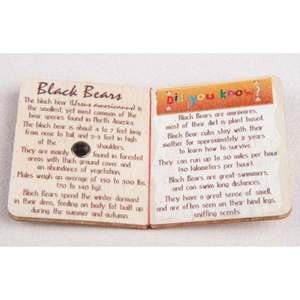 Black Bears
The black bear (Ursus americanus) is
the smallest, yet most common of the
bear species found in North America.
The black bear is about 4-7 feet long
from nose to tail, and 2-3 feet in height
at the shoulders.
They are mainly found in forested
areas with thick ground cover and
an abundance of vegetation.
Males weigh an average of 150 to 300 lbs
(70 to 140 kg).
Black Bears spend the winter dormant
in their dens, feeding on body fat built up
during the summer and autumn.
Did you know?
Black Bears are omnivores,
most of their diet is plant based.
Black Bear cubs stay with their
mother for approximately 2 years
to learn how to survive.
They can run up to 30 miles per hour
(50 kilometers per hour).
Black Bears are great swimmers,
and can swim long distances.
They have a great sense of smell,
and are often seen on their hind legs,
sniffing scents.